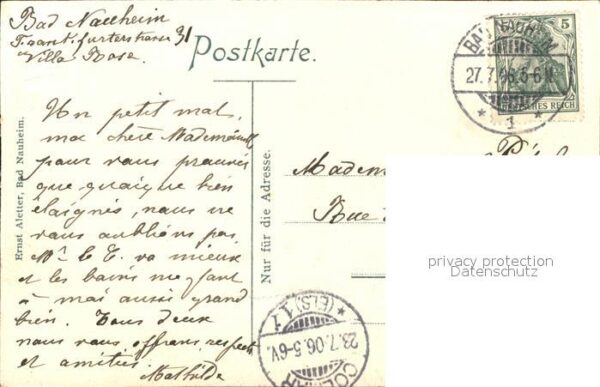 Bad Nauheim
Frankfurterstrasse 31
Villa Rosa
Postkarte.
5
BAD NAUHEIM
27.7.06.5-6N.
* 1 *
DEUTSCHES REICH
Un petit mot,
ma chère Mademoiselle
pour vous prouver
que quoique bien
éloignés, nous ne
vous oublions pas.
Mr. L. E. va mieux
et les bains me font
à moi aussi grand
bien. Tous deux
nous vous offrons respects
et amitiés.
Mathilde
Ernst Aletter, Bad Nauheim.
Nur für die Adresse.
Madem
Rue
privacy protection
Datenschutz
COLMAR
23.7.06.5-6V.
*(ELS) 1 1